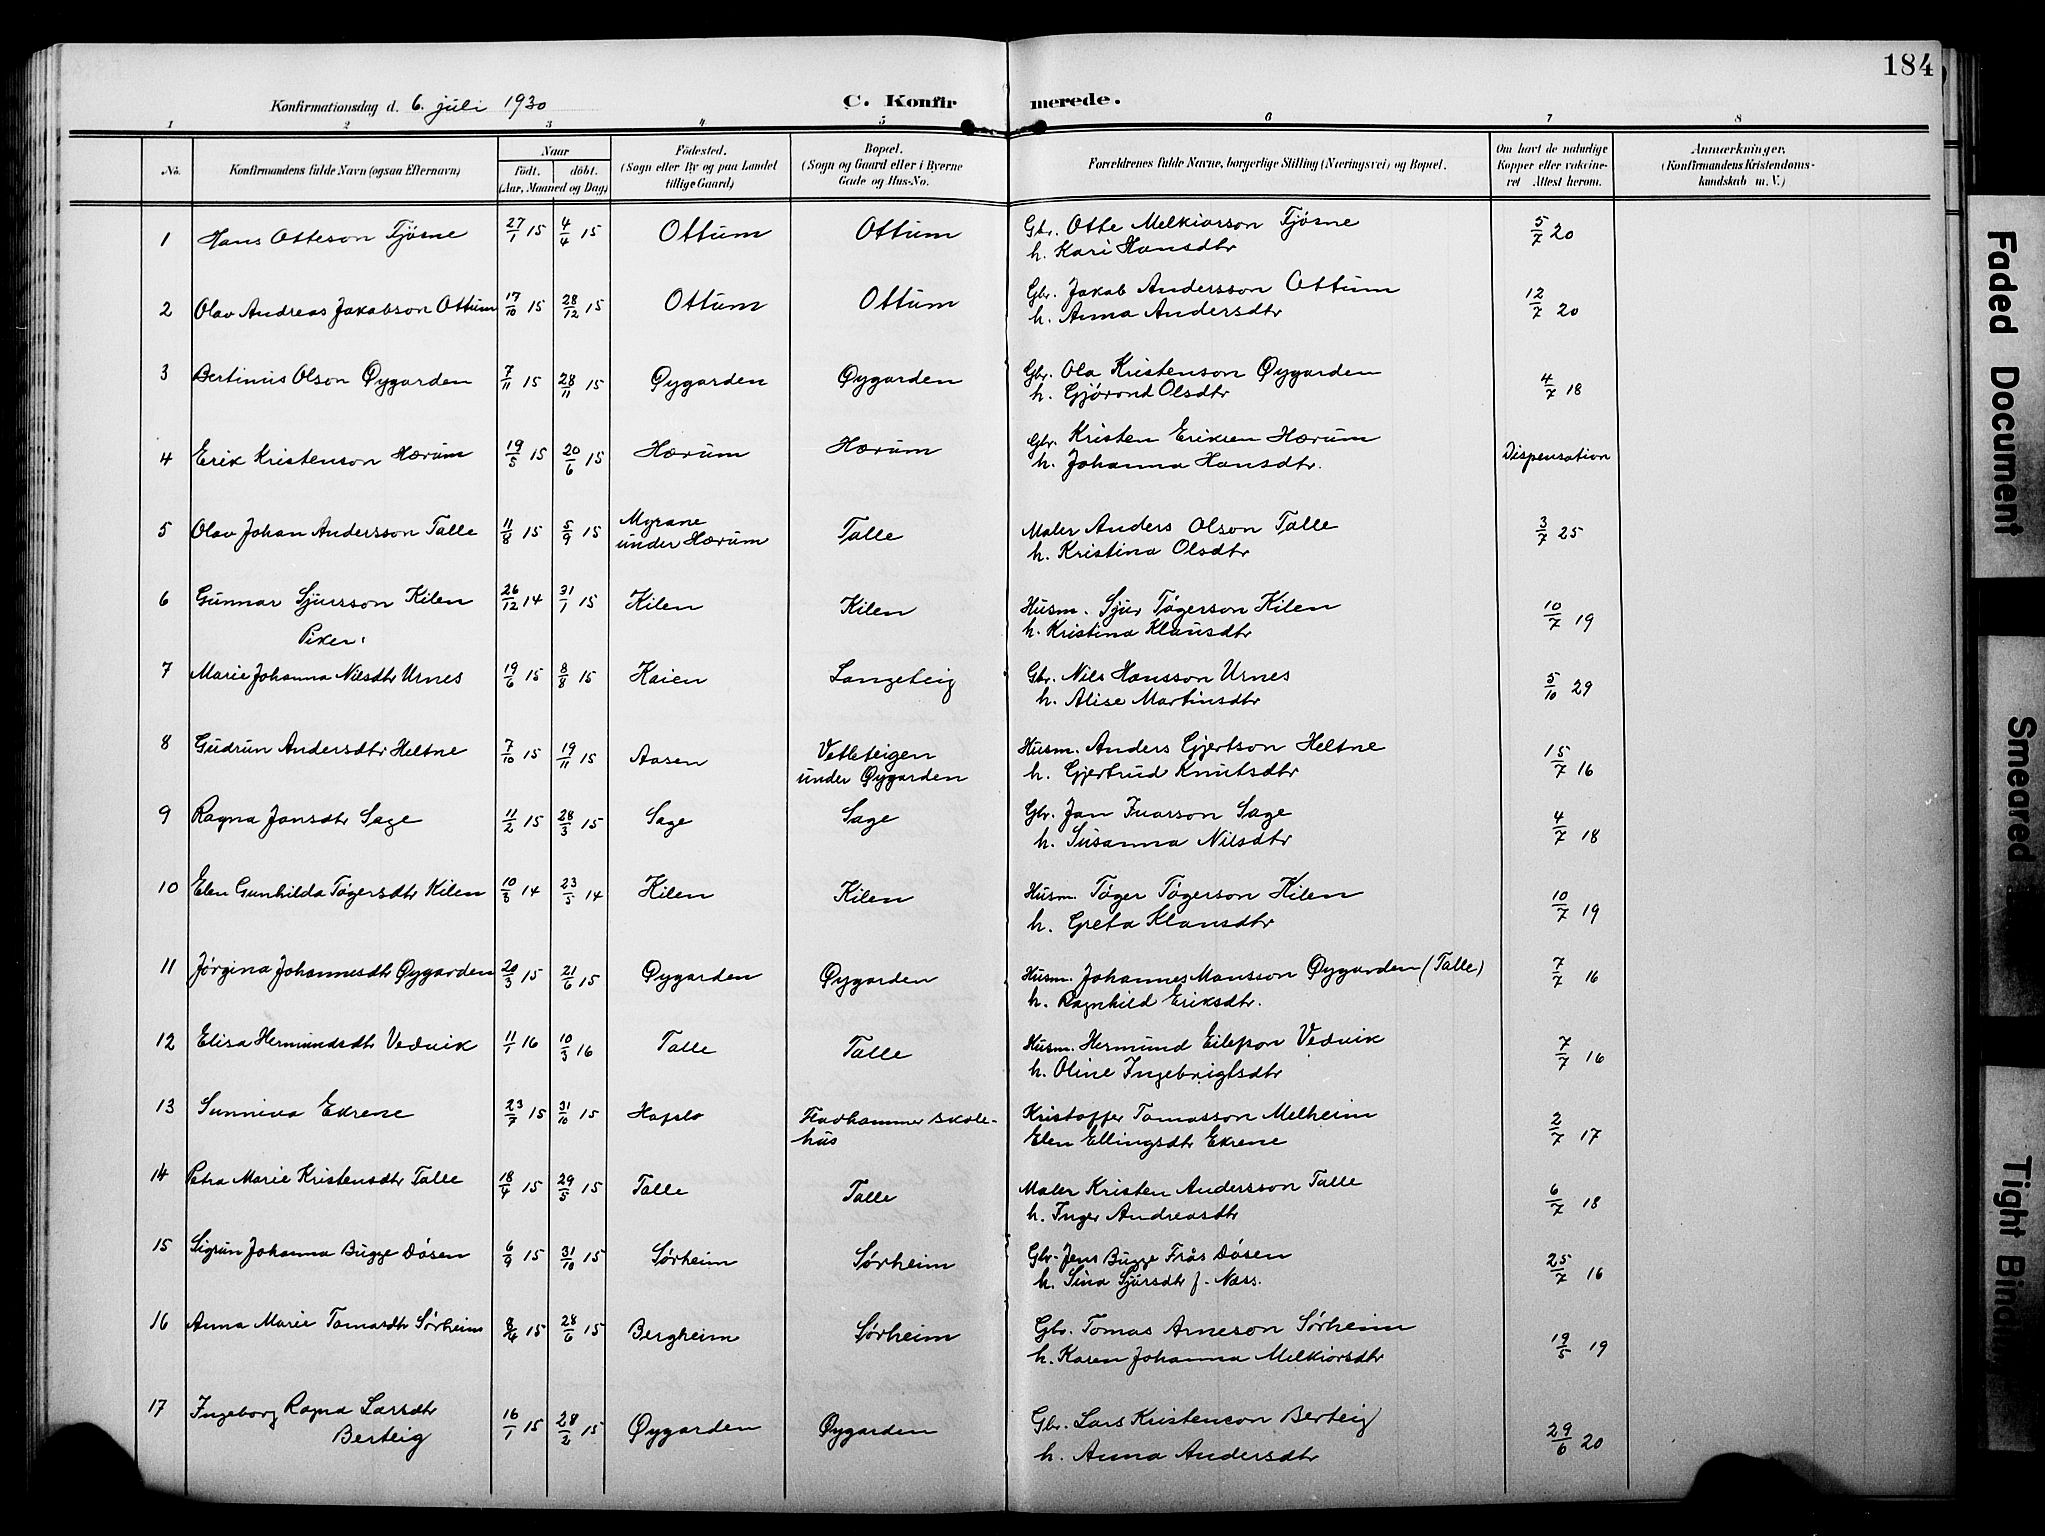 184
Konfirmationsdag d. 6. juli 1930 C. Konfirmerede.
1 2 3 4 5 6 7 8
No. Konfirmandens fulde Navn (ogsaa Efternavn) Naar Födt. döbt. (Aar, Maaned og Dag) Födested. (Sogn eller By og paa Landet tillige Gaard) Bopæl. (Sogn og Gaard eller i Byerne Gade og Hus-No. Forældrenes fulde Navne, borgerlige Stilling (Næringsvei) og Bopæl. Om havt de naturlige Kopper eller vakcineret Attest herom. Anmærkninger, (Konfirmandens Kristendomskundskab m. V.)
1 Hans Otteson Fjøsne 27/1 15 4/4 15 Ottum Ottum Gbr. Otte Melkiorson Fjøsne 5/7 20
h. Kari Hansdtr
2 Olav Andreas Jakobson Ottum 17/10 15 28/12 15 Ottum Ottum Gbr. Jakob Andersson Ottum 12/7 20
h. Anna Andersdtr
3 Bertinus Olson Øygarden 7/11 15 28/11 15 Øygarden Øygarden Gbr. Ola Kristenson Øygarden 4/7 18
h. Gjørond Olsdtr
4 Erik Kristenson Hærum 19/5 15 20/6 15 Hærum Hærum Gbr. Kristen Eriksen Hærum Dispensation
h. Johanna Hansdtr.
5 Olav Johan Andersson Talle 11/8 15 5/9 15 Myrane under Hærum Talle Maler Anders Olson Talle 3/7 25
h. Kristina Olsdtr
6 Gunnar Sjursson Kilen 26/12 14 31/1 15 Kilen Kilen Husm. Sjur Tøgerson Kilen 10/7 19
h. Kristina Klausdtr
Piker:
7 Marie Johanna Nilsdtr Urnes 19/6 15 8/8 15 Kaien Langeteig Gbr. Nils Hansson Urnes 5/10 29
h. Alise Martinsdtr
8 Gudrun Andersdtr Heltne 7/10 15 19/11 15 Aasen Vetleteigen under Øygarden Husm. Anders Gjertson Heltne 15/7 16
h. Gjertrud Knutsdtr
9 Ragna Jansdtr Sage 11/2 15 28/3 15 Sage Sage Gbr. Jan Ivarson Sage 4/7 18
h. Susanna Nilsdtr
10 Elen Gunhilda Tøgersdtr Kilen 14 23/5 14 Kilen Kilen Husm. Tøger Tøgerson Kilen 10/7 19
h. Greta Klausdtr
11 Jørgina Johannesdtr Øygarden 20/3 15 21/6 15 Øygarden Øygarden Husm. Johannes Monsson Øygarden (Talle) 7/7 16
h. Ragnhild Eriksdtr.
12 Elisa Hermundsdtr Vedvik 11/1 16 10/3 16 Talle Talle Husm. Hermund Eilefson Vedvik 7/7 16
h. Oline Ingebrigtsdtr
13 Sunniva Ekrene 23/7 15 31/10 15 Hafslo Flaahammer skolehus Kristoffer Tomasson Melheim 2/7 17
Elen Ellingsdtr Ekrene
14 Petra Marie Kristensdtr Talle 18/4 15 29/5 15 Talle Talle Maler Kristen Andersson Talle 6/7 18
h. Inger Andreasdtr
15 Sigrun Johanna Bugge Døsen 6/9 15 31/10 15 Sørheim Sørheim Gbr. Jens Bugge Frås Døsen 25/7 16
h. Sina Sjursdtr f. Næss.
16 Anna Marie Tomasdtr Sørheim 15 28/6 15 Bergheim Sørheim Gbr. Tomas Arneson Sørheim 19/5 19
h. Karen Johanna Melkiorsdtr
17 Ingeborg Ragna Larsdtr Berteig 16/1 15 28/2 15 Øygarden Øygarden Gbr. Lars Kristenson Berteig 29/6 20
h. Anna Andersdtr
Faded Document
Smeared
Tight Bindin